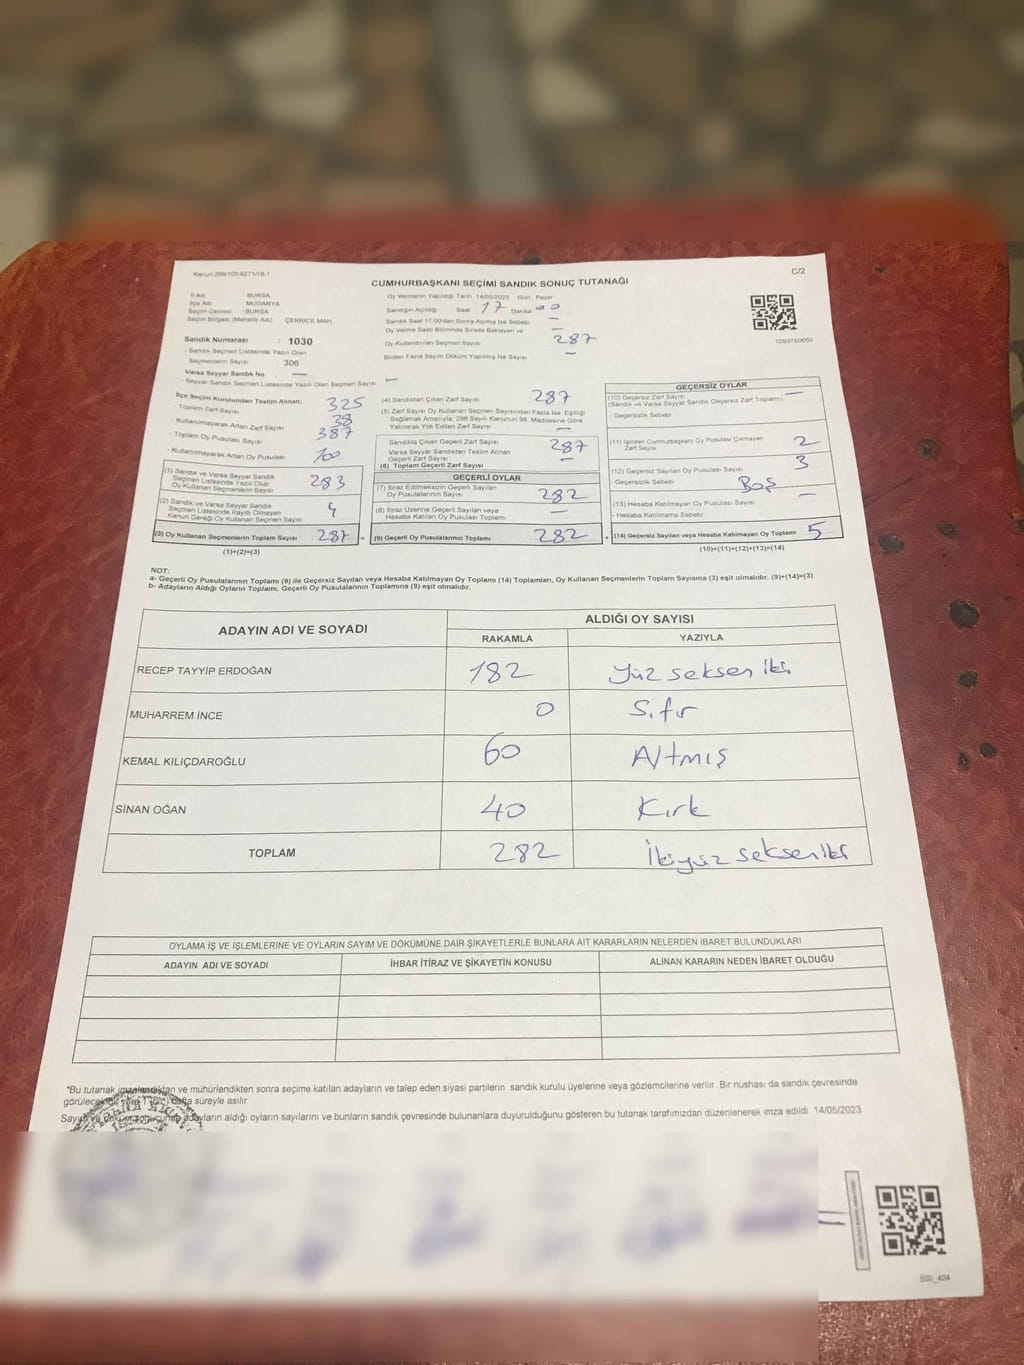 Kanun:298/105;6271/18-1
C/2
CUMHURBAŞKANI SEÇİMİ SANDIK SONUÇ TUTANAĞI
İl Adı : BURSA
İlçe Adı : MUDANYA
Seçim Çevresi : BURSA
Seçim Bölgesi (Mahalle Adı) : ÇEKRİCE MAH
Sandık Numarası : 1030
- Sandık Seçmen Listesinde Yazılı Olan
Seçmenlerin Sayısı : 306
Varsa Seyyar Sandık No —
- Seyyar Sandık Seçmen Listesinde Yazılı Olan Seçmen Sayısı —
Oy Vermenin Yapıldığı Tarih : 14/05/2023 Gün : Pazar
Sandığın Açıldığı Saat 17 Dakika 00
Sandık Saat 17:00'den Sonra Açılmış İse Sebebi —
Oy Verme Saati Bitiminde Sırada Bekleyen ve —
Oy Kullandırılan Seçmen Sayısı 287
Birden Fazla Sayım Döküm Yapılmış İse Sayısı —
1093750650
İlçe Seçim Kurulundan Teslim Alınan;
- Toplam Zarf Sayısı 325
- Kullanılmayarak Artan Zarf Sayısı 38
- Toplam Oy Pusulası Sayısı 387
- Kullanılmayarak Artan Oy Pusulası 100
(1) Sandık ve Varsa Seyyar Sandık
Seçmen Listesinde Yazılı Olup
Oy Kullanan Seçmenlerin Sayısı 283
(2) Sandık ve Varsa Seyyar Sandık
Seçmen Listesinde Kayıtlı Olmayan
Kanun Gereği Oy Kullanan Seçmen Sayısı 4
(3) Oy Kullanan Seçmenlerin Toplam Sayısı 287 =
(1)+(2)=(3)
(4) Sandıktan Çıkan Zarf Sayısı 287
(5) Zarf Sayısı Oy Kullanan Seçmen Sayısından Fazla İse, Eşitliği
Sağlamak Amacıyla, 298 Sayılı Kanunun 98. Maddesine Göre
Yakılarak Yok Edilen Zarf Sayısı —
Sandıkta Çıkan Geçerli Zarf Sayısı 287
Varsa Seyyar Sandıktan Teslim Alınan
Geçerli Zarf Sayısı —
(6) Toplam Geçerli Zarf Sayısı
GEÇERLİ OYLAR
(7) İtiraz Edilmeksizin Geçerli Sayılan
Oy Pusulalarının Sayısı 282
(8) İtiraz Üzerine Geçerli Sayılan veya
Hesaba Katılan Oy Pusulası Toplamı —
(9) Geçerli Oy Pusulalarının Toplamı 282 +
GEÇERSİZ OYLAR
(10) Geçersiz Zarf Sayısı- —
(Sandık ve Varsa Seyyar Sandık Geçersiz Zarf Toplamı)
- Geçersizlik Sebebi
(11) İçinden Cumhurbaşkanı Oy Pusulası Çıkmayan
Zarf Sayısı 2
(12) Geçersiz Sayılan Oy Pusulası Sayısı 3
- Geçersizlik Sebebi Boş
(13) Hesaba Katılmayan Oy Pusulası Sayısı —
- Hesaba Katılmama Sebebi
(14) Geçersiz Sayılan veya Hesaba Katılmayan Oy Toplamı 5
(10)+(11)+(12)+(13)=(14)
NOT:
a- Geçerli Oy Pusulalarının Toplamı (9) ile Geçersiz Sayılan veya Hesaba Katılmayan Oy Toplamı (14) Toplamları, Oy Kullanan Seçmenlerin Toplam Sayısına (3) eşit olmalıdır. (9)+(14)=(3)
b- Adayların Aldığı Oyların Toplamı, Geçerli Oy Pusulalarının Toplamına (9) eşit olmalıdır.
ADAYIN ADI VE SOYADI
ALDIĞI OY SAYISI
RAKAMLA YAZIYLA
RECEP TAYYİP ERDOĞAN 182 Yüz seksen iki
MUHARREM İNCE 0 Sıfır
KEMAL KILIÇDAROĞLU 60 Altmış
SİNAN OĞAN 40 Kırk
TOPLAM 282 İkiyüz seksen iki
OYLAMA İŞ VE İŞLEMLERİNE VE OYLARIN SAYIM VE DÖKÜMÜNE DAİR ŞİKAYETLERLE BUNLARA AİT KARARLARIN NELERDEN İBARET BULUNDUKLARI
ADAYIN ADI VE SOYADI İHBAR İTİRAZ VE ŞİKAYETİN KONUSU ALINAN KARARIN NEDEN İBARET OLDUĞU
*Bu tutanak imzalandıktan ve mühürlendikten sonra seçime katılan adayların ve talep eden siyasi partilerin sandık kurulu üyelerine veya gözlemcilerine verilir. Bir nüshası da sandık çevresinde
görülecek yere 1 (Bir) hafta süreyle asılır.
Sayım ve döküm sonucunda adayların aldığı oyların sayılarını ve bunların sandık çevresinde bulunanlara duyurulduğunu gösteren bu tutanak tarafımızdan düzenlenerek imza edildi. 14/05/2023
SSI_404